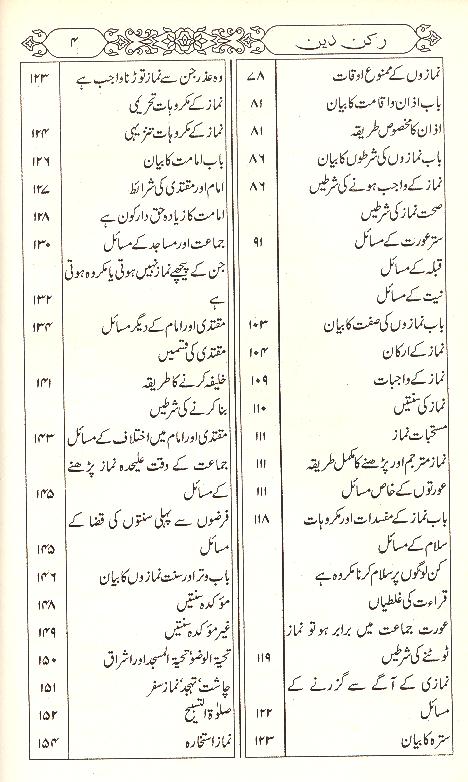 رکن دین
۴
نمازوں کے ممنوع اوقات ۷۸
باب اذان واقامت کا بیان ۸۱
اذان کا مخصوص طریقہ ۸۱
باب نمازوں کی شرطوں کا بیان ۸۶
نماز کے واجب ہونے کی شرطیں ۸۶
صحت نماز کی شرطیں
ستر عورت کے مسائل ۹۱
قبلہ کے مسائل
نیت کے مسائل
باب نمازوں کی صفت کا بیان ۱۰۳
نماز کے ارکان ۱۰۴
نماز کے واجبات ۱۰۹
نماز کی سنتیں ۱۱۰
مستحبات نماز ۱۱۱
نماز مترجم اور پڑھنے کا مکمل طریقہ ۱۱۱
عورتوں کے خاص مسائل ۱۱۱
باب نماز کے مفسدات اور مکروہات ۱۱۸
سلام کے مسائل
کن لوگوں پر سلام کرنا مکروہ ہے
قراءت کی غلطیاں
عورت جماعت میں برابر ہو تو نماز
ٹوٹنے کی شرطیں ۱۱۹
نمازی کے آگے سے گزرنے کے
مسائل ۱۲۲
سترہ کا بیان ۱۲۳
وہ عذر جن سے نماز توڑنا واجب ہے ۱۲۳
نماز کے مکروہات تحریمی
نماز کے مکروہات تنزیہی ۱۲۴
باب امامت کا بیان ۱۲۶
امام اور مقتدی کی شرائط ۱۲۷
امامت کا زیادہ حق دار کون ہے ۱۲۸
جماعت اور مساجد کے مسائل ۱۳۰
جن کے پیچھے نماز نہیں ہوتی یا مکروہ ہوتی
ہے ۱۳۲
مقتدی اور امام کے دیگر مسائل ۱۳۴
مقتدی کی قسمیں
خلیفہ کرنے کا طریقہ ۱۴۱
بنا کرنے کی شرطیں
مقتدی اور امام میں اختلاف کے مسائل ۱۴۳
جماعت کے وقت علیحدہ نماز پڑھنے
کے مسائل ۱۴۵
فرضوں سے پہلی سنتوں کی قضا کے
مسائل ۱۴۵
باب وتر اور سنت نمازوں کا بیان ۱۴۶
مؤکدہ سنتیں ۱۴۸
غیر مؤکدہ سنتیں ۱۴۹
تحیۃ الوضو، تحیۃ المسجد اور اشراق ۱۵۰
چاشت، تہجد، نماز سفر ۱۵۱
صلوٰۃ التسبیح ۱۵۲
نماز استخارہ ۱۵۴